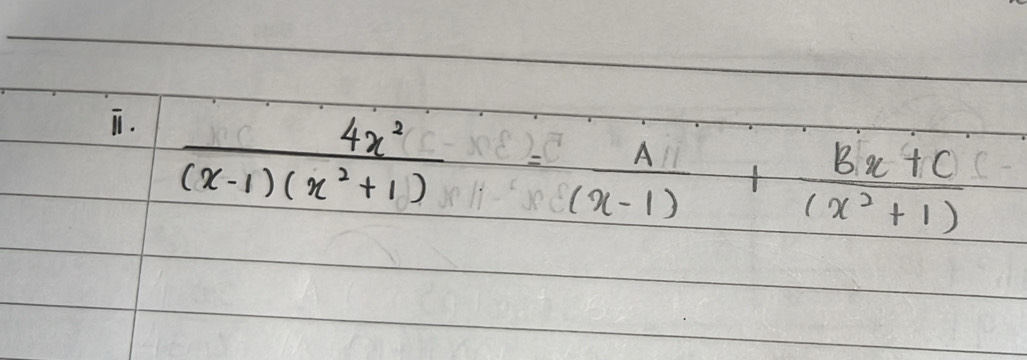 ii. 4x² / (x-1)(x²+1) = A / (x-1) + Bx+C / (x²+1)